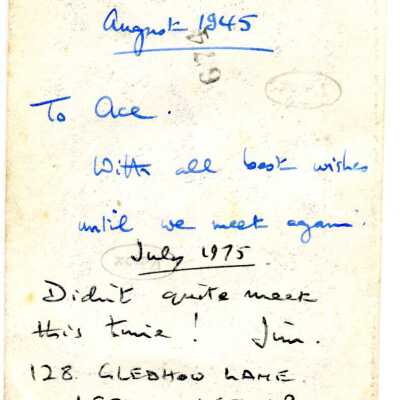 August 1945
479
To Ace.
With all best wishes
until we meet again.
July 1975
Didn't quite meet
this time! Jim.
128 GLEDHOW LANE.